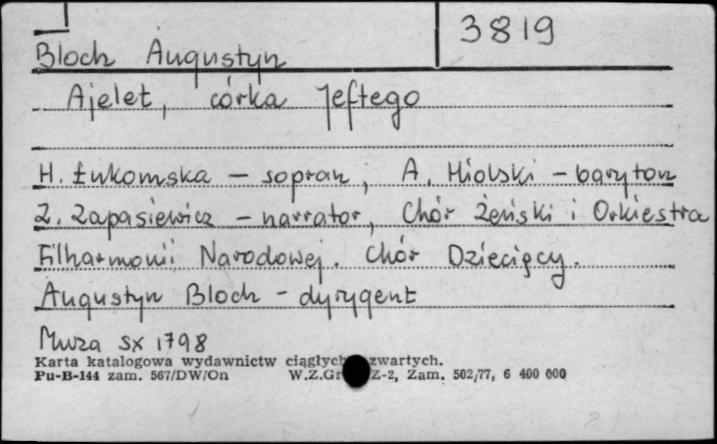 3819
Bloch Augustyn
Ajelet, córka Jeftego
H. Łukomska – sopran, A. Hiolski – baryton
Z. Zapasiewicz – narrator, Chór Żeński i Orkiestra
Filharmonii Narodowej. Chór Dziecięcy.
Augustyn Bloch – dyrygent
Muza SX 1798
Karta katalogowa wydawnictw ciągłych zwartych.
Pu-B-144 zam. 567/DW/On W.Z.Gr Z-2, Zam. 502/77, 6 400 000